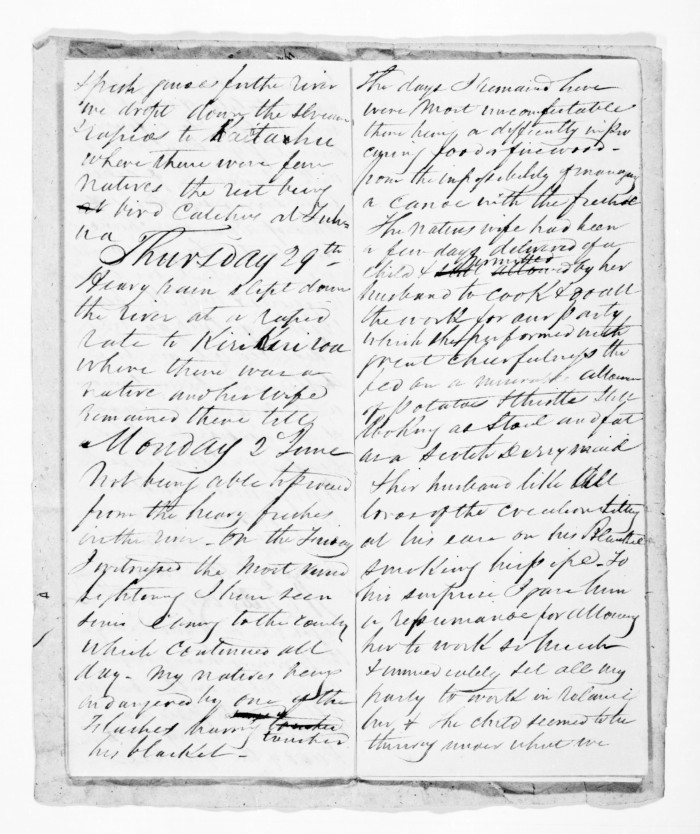 fresh
we dropt down the
rapids to
where there were few
natives the rest being
bird catchers at Tuh-
ua
Thursday 29th
Heavy rain slept down
the river at a rapid
rate to Kirikiriroa
where there was a
native and his wife
remained there till
Monday 2d June
Not being able to proceed
from the heavy freshes
in the river - On the Friday
I witnessed the most vivid
lightning I have seen
since coming to the country
which continued all
day - My natives being
endangered by one of the
flashes having touched
his blanket -
The days I remained here
were most uncomfortable
there being a difficulty in pro
curing food & firewood -
from the impossibility of managing
a canoe with the freshes
The natives wife had been
a few days delivered of a
child & permitted by her
husband to cook & do all
the work for our party
which she performed with
great cheerfulness she
fed on a allowance
of Potatoes & thistles still
looking as
as a Scotch Dairy maid
& her husband like all
lords of the creation sitting
at his ease on his Blanket
smoking his pipe - To
his surprise I gave him
a reprimand for allowing
her to work so much
& immediately set all my
party to work in relieving
her & the child seemed to be
thriving under what we